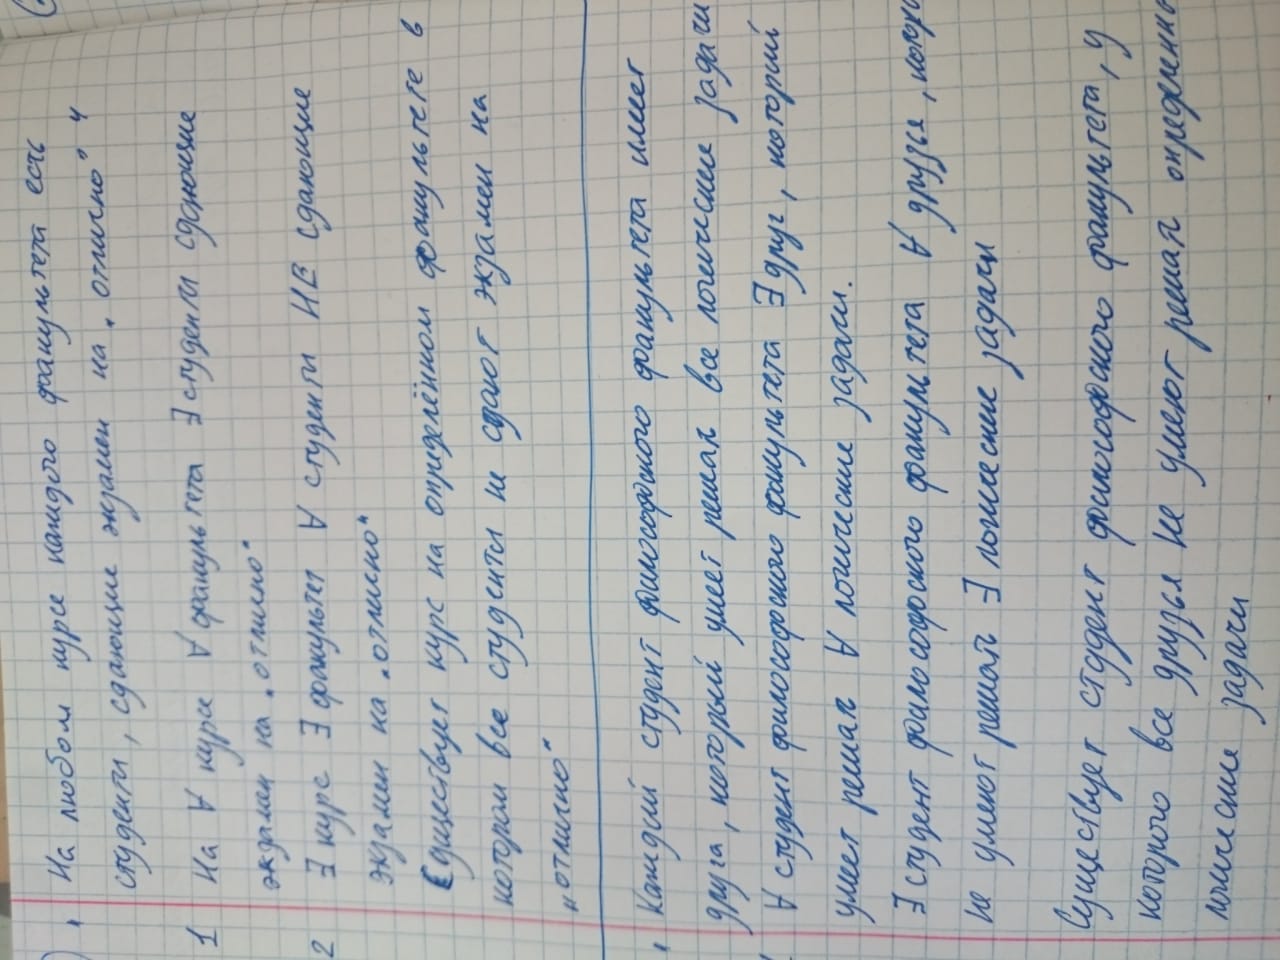 На любом курсе каждого факультета есть
студенты, сдающие экзамен на „отлично“ ч
1 На ∀ курсе ∀ факультета ∃ студенты сдающие
экзамен на „отлично“
2 ∃ курс ∃ факультет ∀ студенты НЕ сдающие
экзамен на „отлично“
Существует курс на определённом факультете в
котором все студенты не сдают экзамен на
„отлично“
Каждый студент философского факультета имеет
друга, который умеет решать все логические задачи
∀ студент философского факультета ∃ друг, который
умеет решать ∀ логические задачи.
∃ студент философского факультета ∀ друзья,
не умеют решать ∃ логические задачи
Существует студент философского факультета, у
которого все друзья не умеют решать
логические задачи